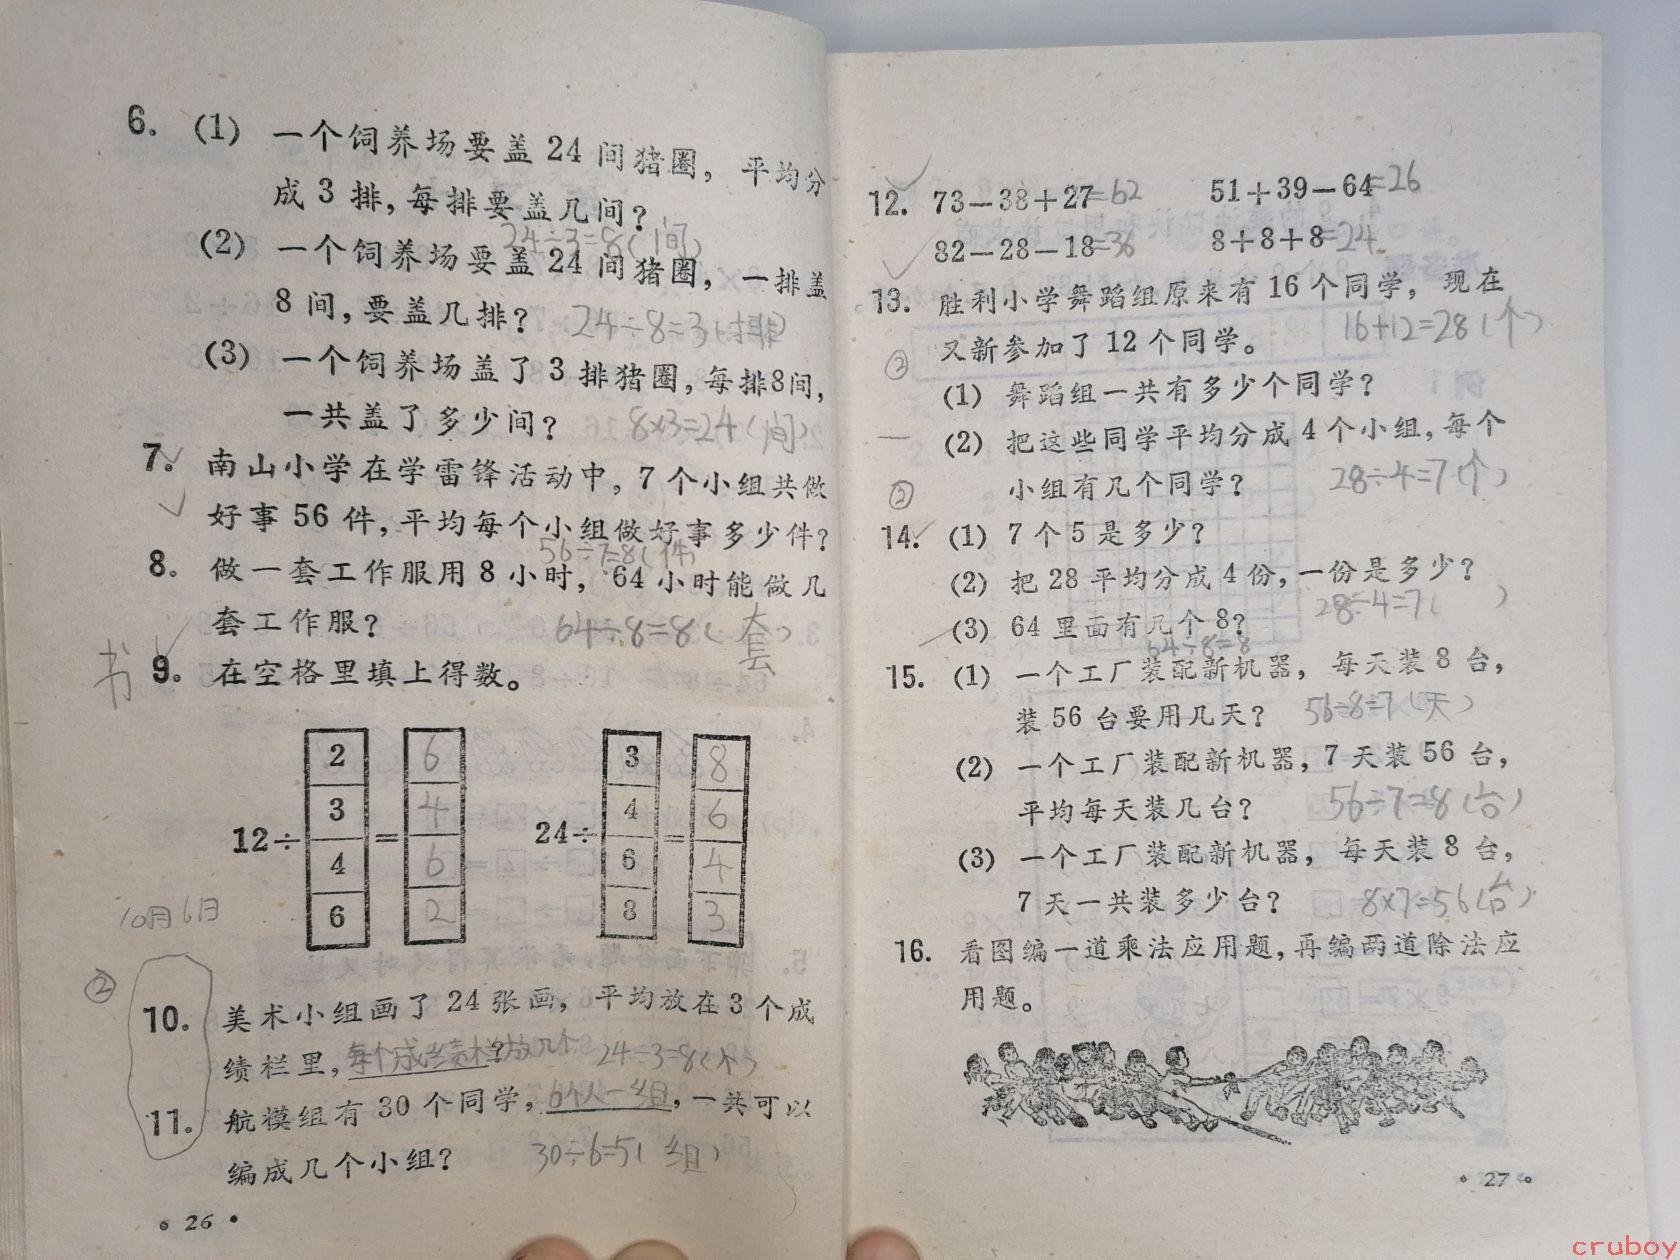 6. (1) 一个饲养场要盖 24 间猪圈, 平均分
成 3 排, 每排要盖几间?
24÷3=8(间)
(2) 一个饲养场要盖 24 间猪圈, 一排盖
8 间, 要盖几排? 24÷8=3(排)
(3) 一个饲养场盖了 3 排猪圈, 每排8间,
一共盖了多少间? 8×3=24(间)
7. 南山小学在学雷锋活动中, 7 个小组共做
好事 56 件, 平均每个小组做好事多少件?
56÷7=8(件)
8. 做一套工作服用 8 小时, 64 小时能做几
套工作服? 64÷8=8(套)
书
9. 在空格里填上得数。
2 6 3 8
3 4 4 6
12÷ = 24÷ =
4 6 6 4
6 2 8 3
10月6日
②
10. 美术小组画了 24 张画, 平均放在 3 个成
绩栏里, 每个成绩栏放几个? 24÷3=8(个)
11. 航模组有 30 个同学, 6个人一组, 一共可以
编成几个小组? 30÷6=5(组)
• 26 •
12. 73-38+27=62 51+39-64=26
82-28-18=36 8+8+8=24
13. 胜利小学舞蹈组原来有 16 个同学, 现在
又新参加了 12 个同学。 16+12=28(个)
(1) 舞蹈组一共有多少个同学?
(2) 把这些同学平均分成 4 个小组, 每个
小组有几个同学? 28÷4=7(个)
②
14. (1) 7 个 5 是多少?
(2) 把 28 平均分成 4 份, 一份是多少?
28÷4=7( )
(3) 64 里面有几个 8?
64÷8=8
15. (1) 一个工厂装配新机器, 每天装 8 台,
装 56 台要用几天? 56÷8=7(天)
(2) 一个工厂装配新机器, 7 天装 56 台,
平均每天装几台? 56÷7=8(台)
(3) 一个工厂装配新机器, 每天装 8 台,
7 天一共装多少台? 8×7=56(台)
16. 看图编一道乘法应用题, 再编两道除法应
用题。
• 27 •
cruboy